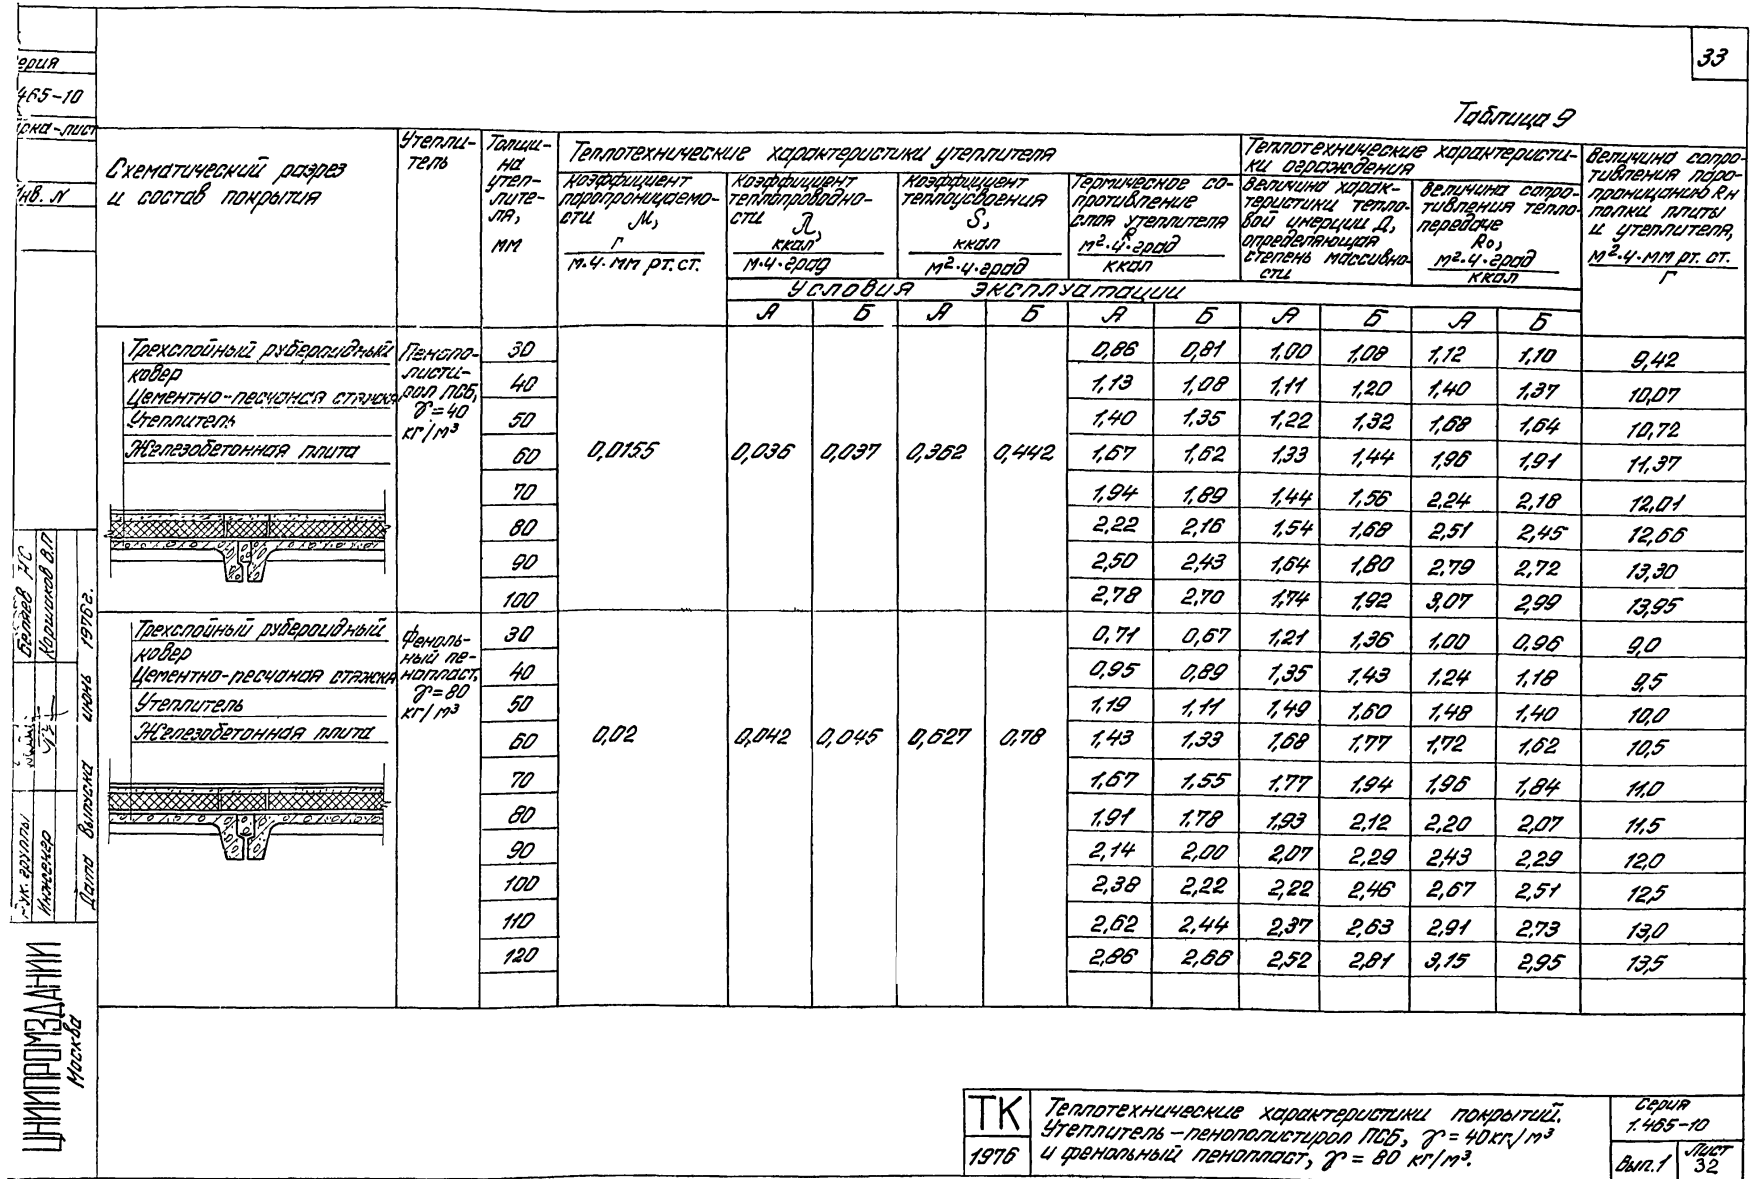 33
ерия
465-10
Инв. N
Таблица 9
Схематический разрез
и состав покрытия
Утепли-
тель
Толщи-
на
утеп-
лите-
ля,
мм
Теплотехнические характеристики утеплителя
Коэффициент
паропроницаемо-
сти М,
г
м·ч·мм рт.ст.
Коэффициент
теплопроводно-
сти λ,
ккал
м·ч·град
Коэффициент
теплоусвоения
S,
ккал
м²·ч·град
Термическое со-
противление
слоя утеплителя
R
м²·ч·град
ккал
Теплотехнические характеристи-
ки ограждения
Величина харак-
теристики тепло-
вой инерции Д,
определяющая
степень массивно-
сти
Величина сопро-
тивления тепло-
передаче
Rо,
м²·ч·град
ккал
Величина сопро-
тивления паро-
проницанию Rн
полки плиты
и утеплителя,
м²·ч·мм рт. ст.
г
Условия эксплуатации
А Б А Б А Б А Б А Б
Трехслойный рубероидный
ковер
Цементно-песчаная стяжка
Утеплитель
Железобетонная плита
Пенопо-
листи-
рол ПСБ,
γ=40
кг/м³
0,0155 0,036 0,037 0,362 0,442
30 0,86 0,81 1,00 1,08 1,12 1,10 9,42
40 1,13 1,08 1,11 1,20 1,40 1,37 10,07
50 1,40 1,35 1,22 1,32 1,68 1,64 10,72
60 1,67 1,62 1,33 1,44 1,96 1,91 11,37
70 1,94 1,89 1,44 1,56 2,24 2,18 12,01
80 2,22 2,16 1,54 1,68 2,51 2,45 12,66
90 2,50 2,43 1,64 1,80 2,79 2,72 13,30
100 2,78 2,70 1,74 1,92 3,07 2,99 13,95
Трехслойный рубероидный
ковер
Цементно-песчаная стяжка
Утеплитель
Железобетонная плита
Феноль-
ный пе-
нопласт,
γ=80
кг/м³
0,02 0,042 0,045 0,627 0,78
30 0,71 0,67 1,21 1,36 1,00 0,96 9,0
40 0,95 0,89 1,35 1,43 1.24 1,18 9,5
50 1,19 1,11 1,49 1,60 1,48 1,40 10,0
60 1,43 1,33 1,68 1,77 1,72 1,62 10,5
70 1,67 1,55 1,77 1,94 1,96 1,84 11,0
80 1.91 1.78 1,93 2,12 2,20 2,07 11,5
90 2,14 2,00 2,07 2,29 2,43 2,29 12,0
100 2,38 2,22 2,22 2,46 2,67 2,51 12,5
110 2,62 2,44 2,37 2,63 2,91 2,73 13,0
120 2,86 2,66 2,52 2,81 3,15 2,95 13,5
Беляев
Коршаков В.П
Рук. группы
Инженер
Дата выпуска июнь 1976г.
ЦНИИПРОМЗДАНИЙ
Москва
ТК
1976
Теплотехнические характеристики покрытий.
Утеплитель – пенополистирол ПСБ, γ = 40кг/м³
и фенольный пенопласт, γ = 80 кг/м³.
Серия
1.465-10
Вып.1
Лист
32